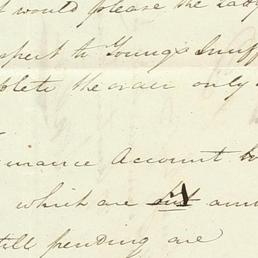 would please the
spect to Young's Snuff
plete the order only
urance Account
which are
still pending are